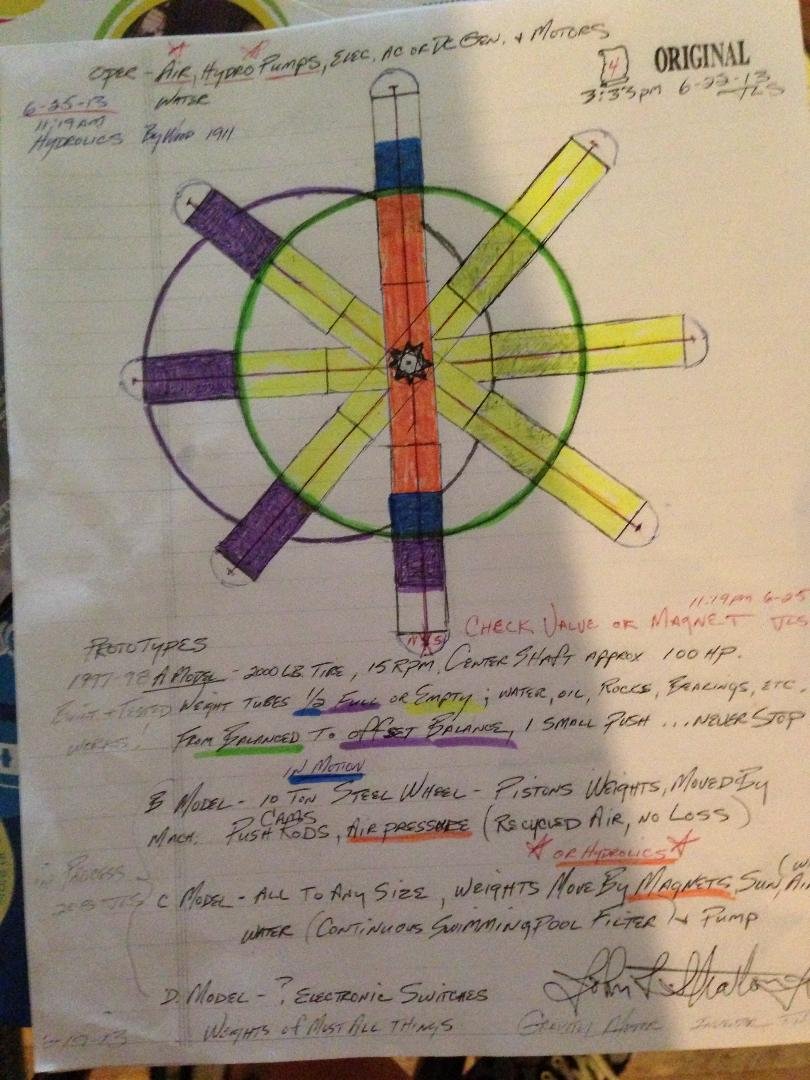 OPER - AIR, HYDRO PUMPS, ELEC. AC OR DC GEN. & MOTORS
WATER
4
ORIGINAL
3:35pm 6-22-13
JLS
6-25-13
11:19AM
HYDROLICS By WOOD 1911
11:19pm 6-25
CHECK VALUE OR MAGNET JLS
N S
PROTOTYPES
1997-98 A MODEL - 2000 LB. TIRE, 15 RPM, CENTER SHAFT APPROX 100 HP.
BUILT + TESTED WEIGHT TUBES 1/2 FULL OR EMPTY; WATER, OIL, ROCKS, BEARINGS, ETC.
WORKS! FROM BALANCED TO OFFSET BALANCE, 1 SMALL PUSH ... NEVER STOP
IN MOTION
B MODEL - 10 TON STEEL WHEEL - PISTONS WEIGHTS, MOVED BY
CAMS
MACH. PUSH RODS, AIR PRESSURE (RECYCLED AIR, NO LOSS)
OR HYDROLICS
IN PROCESS
2013 JLS
C MODEL - ALL TO ANY SIZE, WEIGHTS MOVE BY MAGNETS, SUN, AIR
WATER (CONTINUOUS SWIMMINGPOOL FILTER) & PUMP
D. MODEL - ? ELECTRONIC SWITCHES
WEIGHTS OF MOST ALL THINGS
John L.
GRAVITY MOTOR INVENTOR